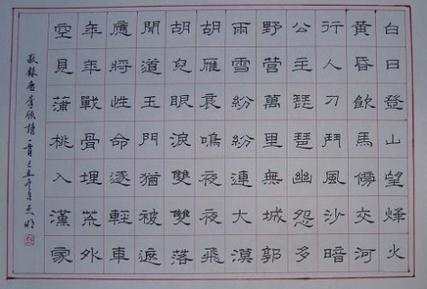 白日登山望烽火
黃昏飲馬傍交河
行人刁鬥風沙暗
公主琵琶幽怨多
野營萬里無城郭
雨雪紛紛連大漠
胡雁哀鳴夜夜飛
胡兒眼淚雙雙落
聞道玉門猶被遮
應將性命逐輕車
年年戰骨埋荒外
空見蒲桃入漢家
敬錄唐李頎詩